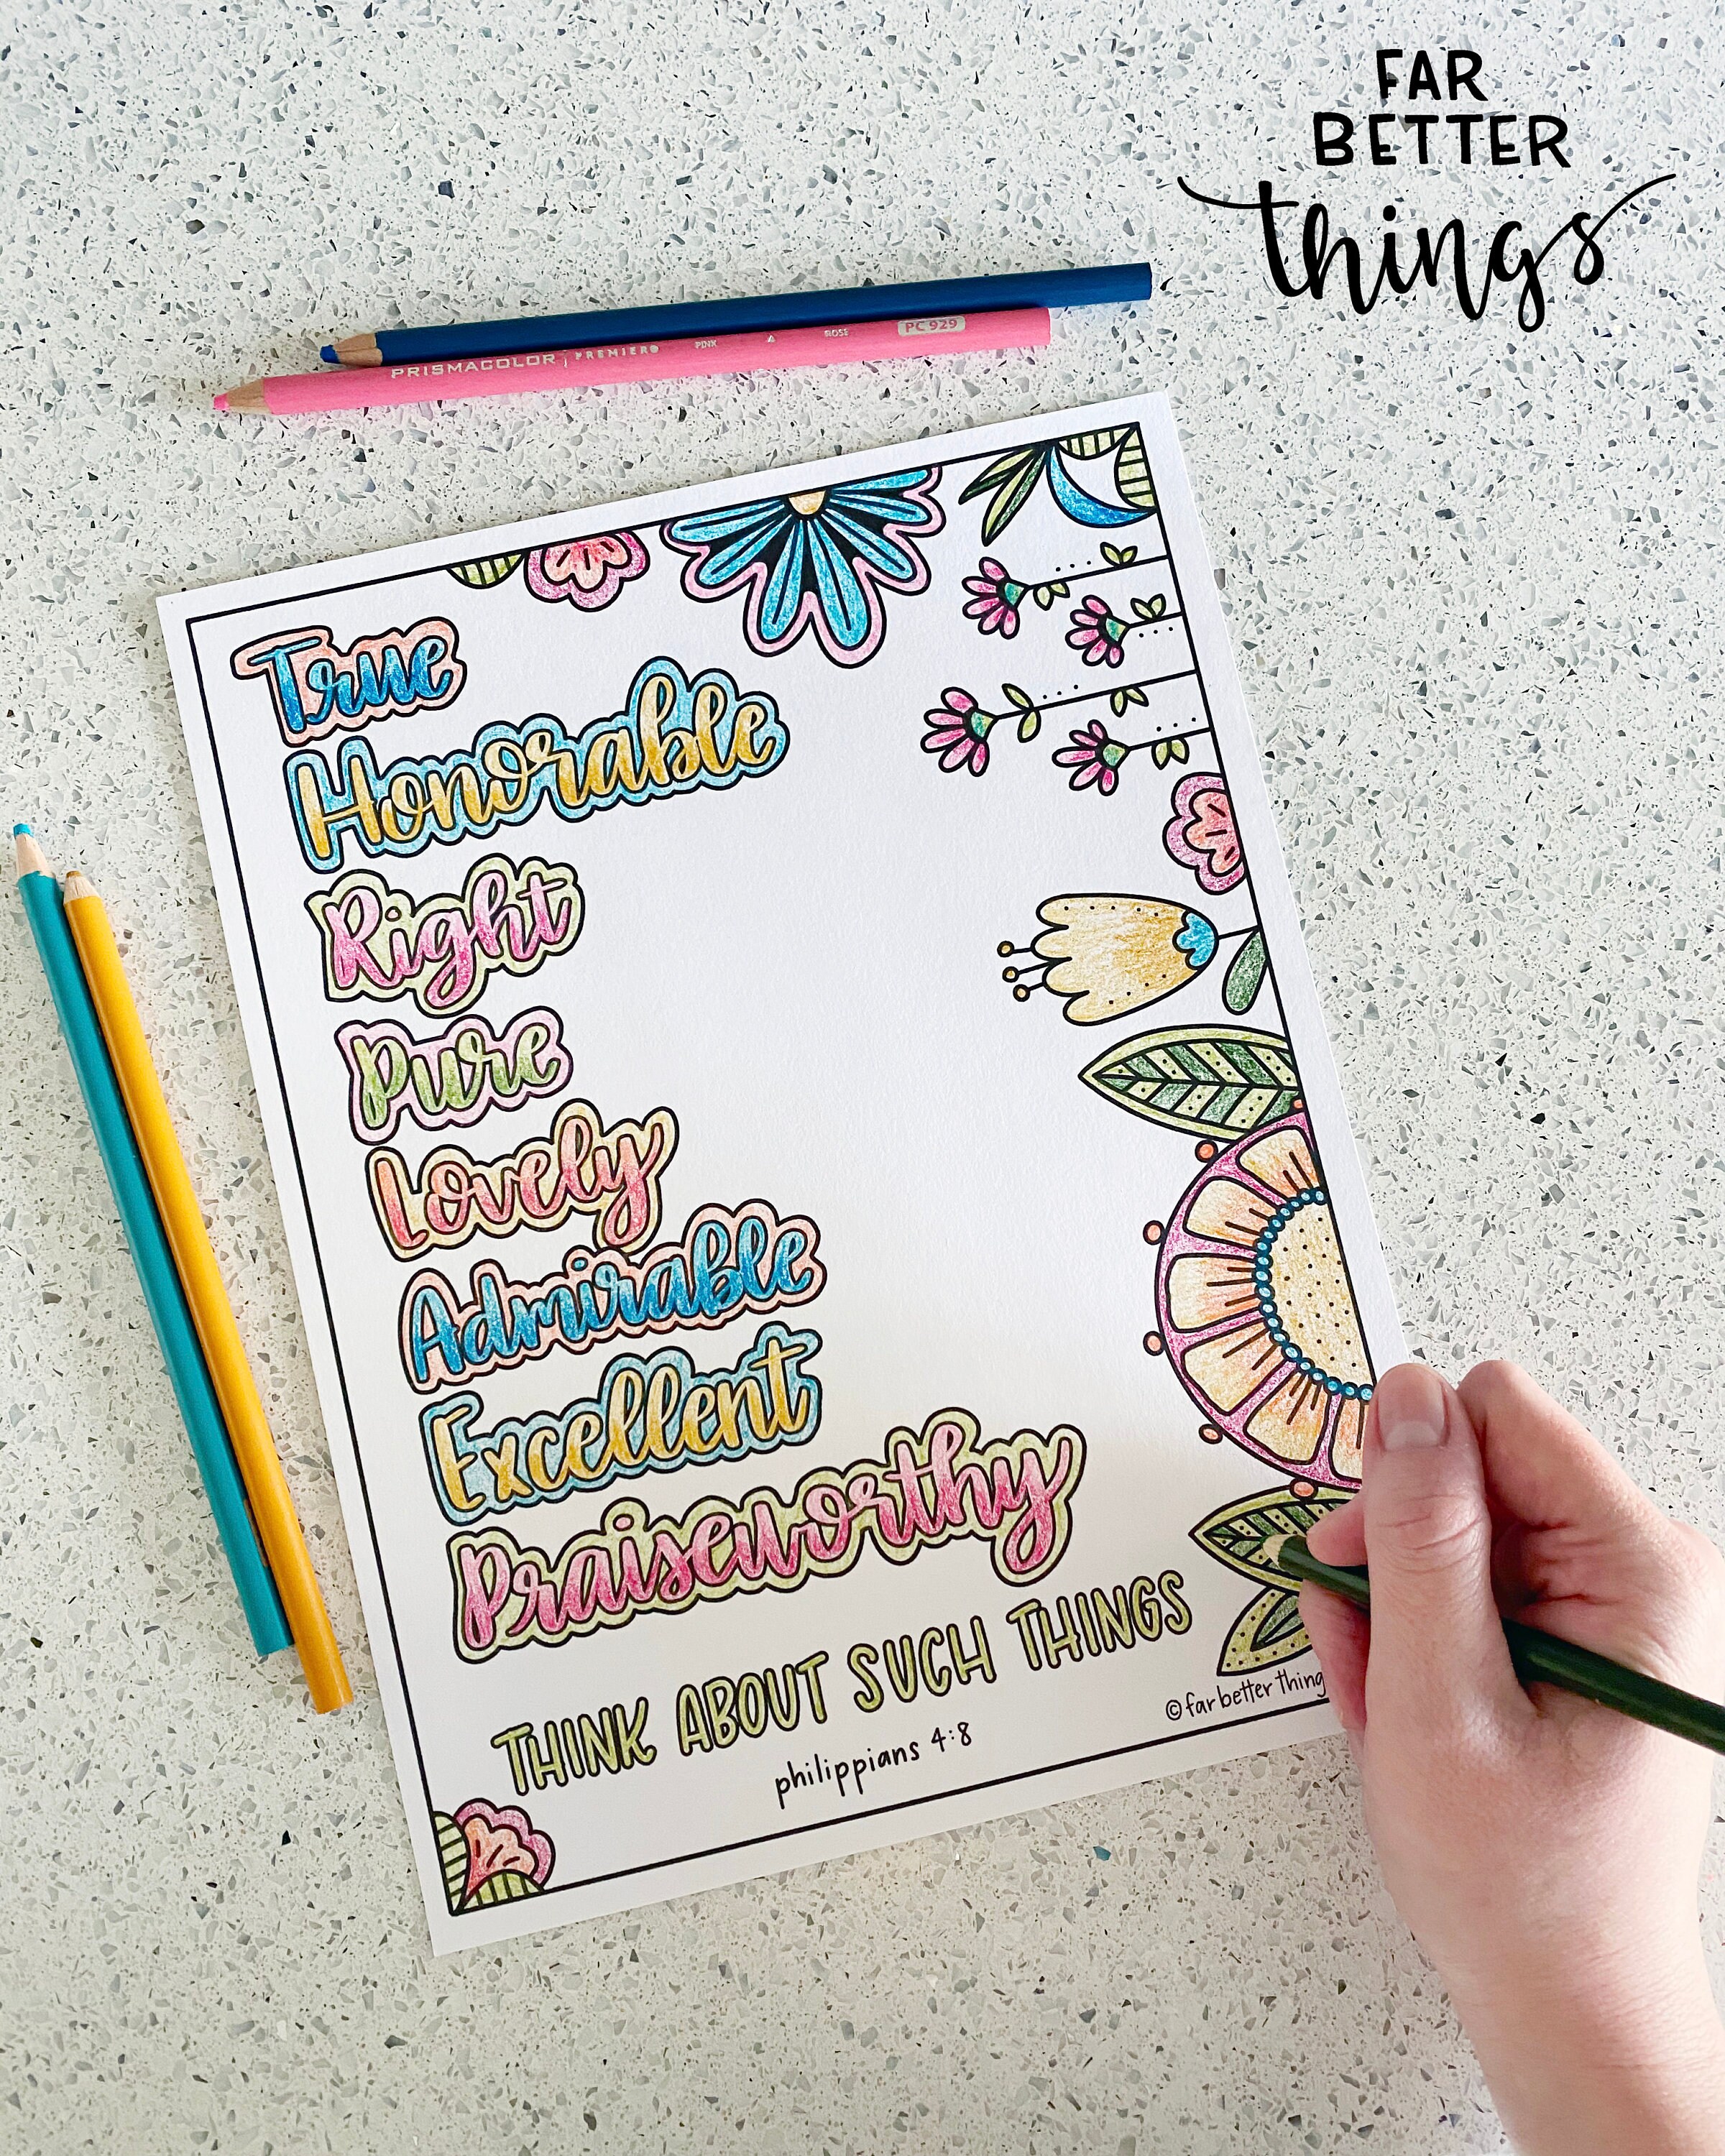 FAR
BETTER
things
PRISMACOLOR PREMIER PINK ROSE PC 929
True
Honorable
Right
Pure
Lovely
Admirable
Excellent
Praiseworthy
THINK ABOUT SUCH THINGS
©far better thing
philippians 4:8